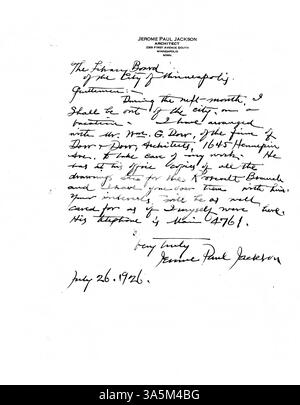 JEROME PAUL JACKSON
ARCHITECT
FIRST AVENUE SOUTH
MINNEAPOLIS
MINN.
The Library Board
of the City of Minneapolis.
Gentlemen:-
During the next month, I
shall be out of the city, on a
vacation. I have arranged
with Mr. Wm. G. Dorr, of the firm of
Dorr & Dorr, Architects, 1645 Hennepin
Ave. to take care of my work. He
has at his office copies of all the
drawings etc for the Roosevelt Branch
and I have gone over them with him.
Your interests will be as well
cared for as if I myself were here.
His telephone is Main 4761.
Very truly
Jerome Paul Jackson
July 26. 1926.
alamy
Image ID: 3A5M4BG
www.alamy.com